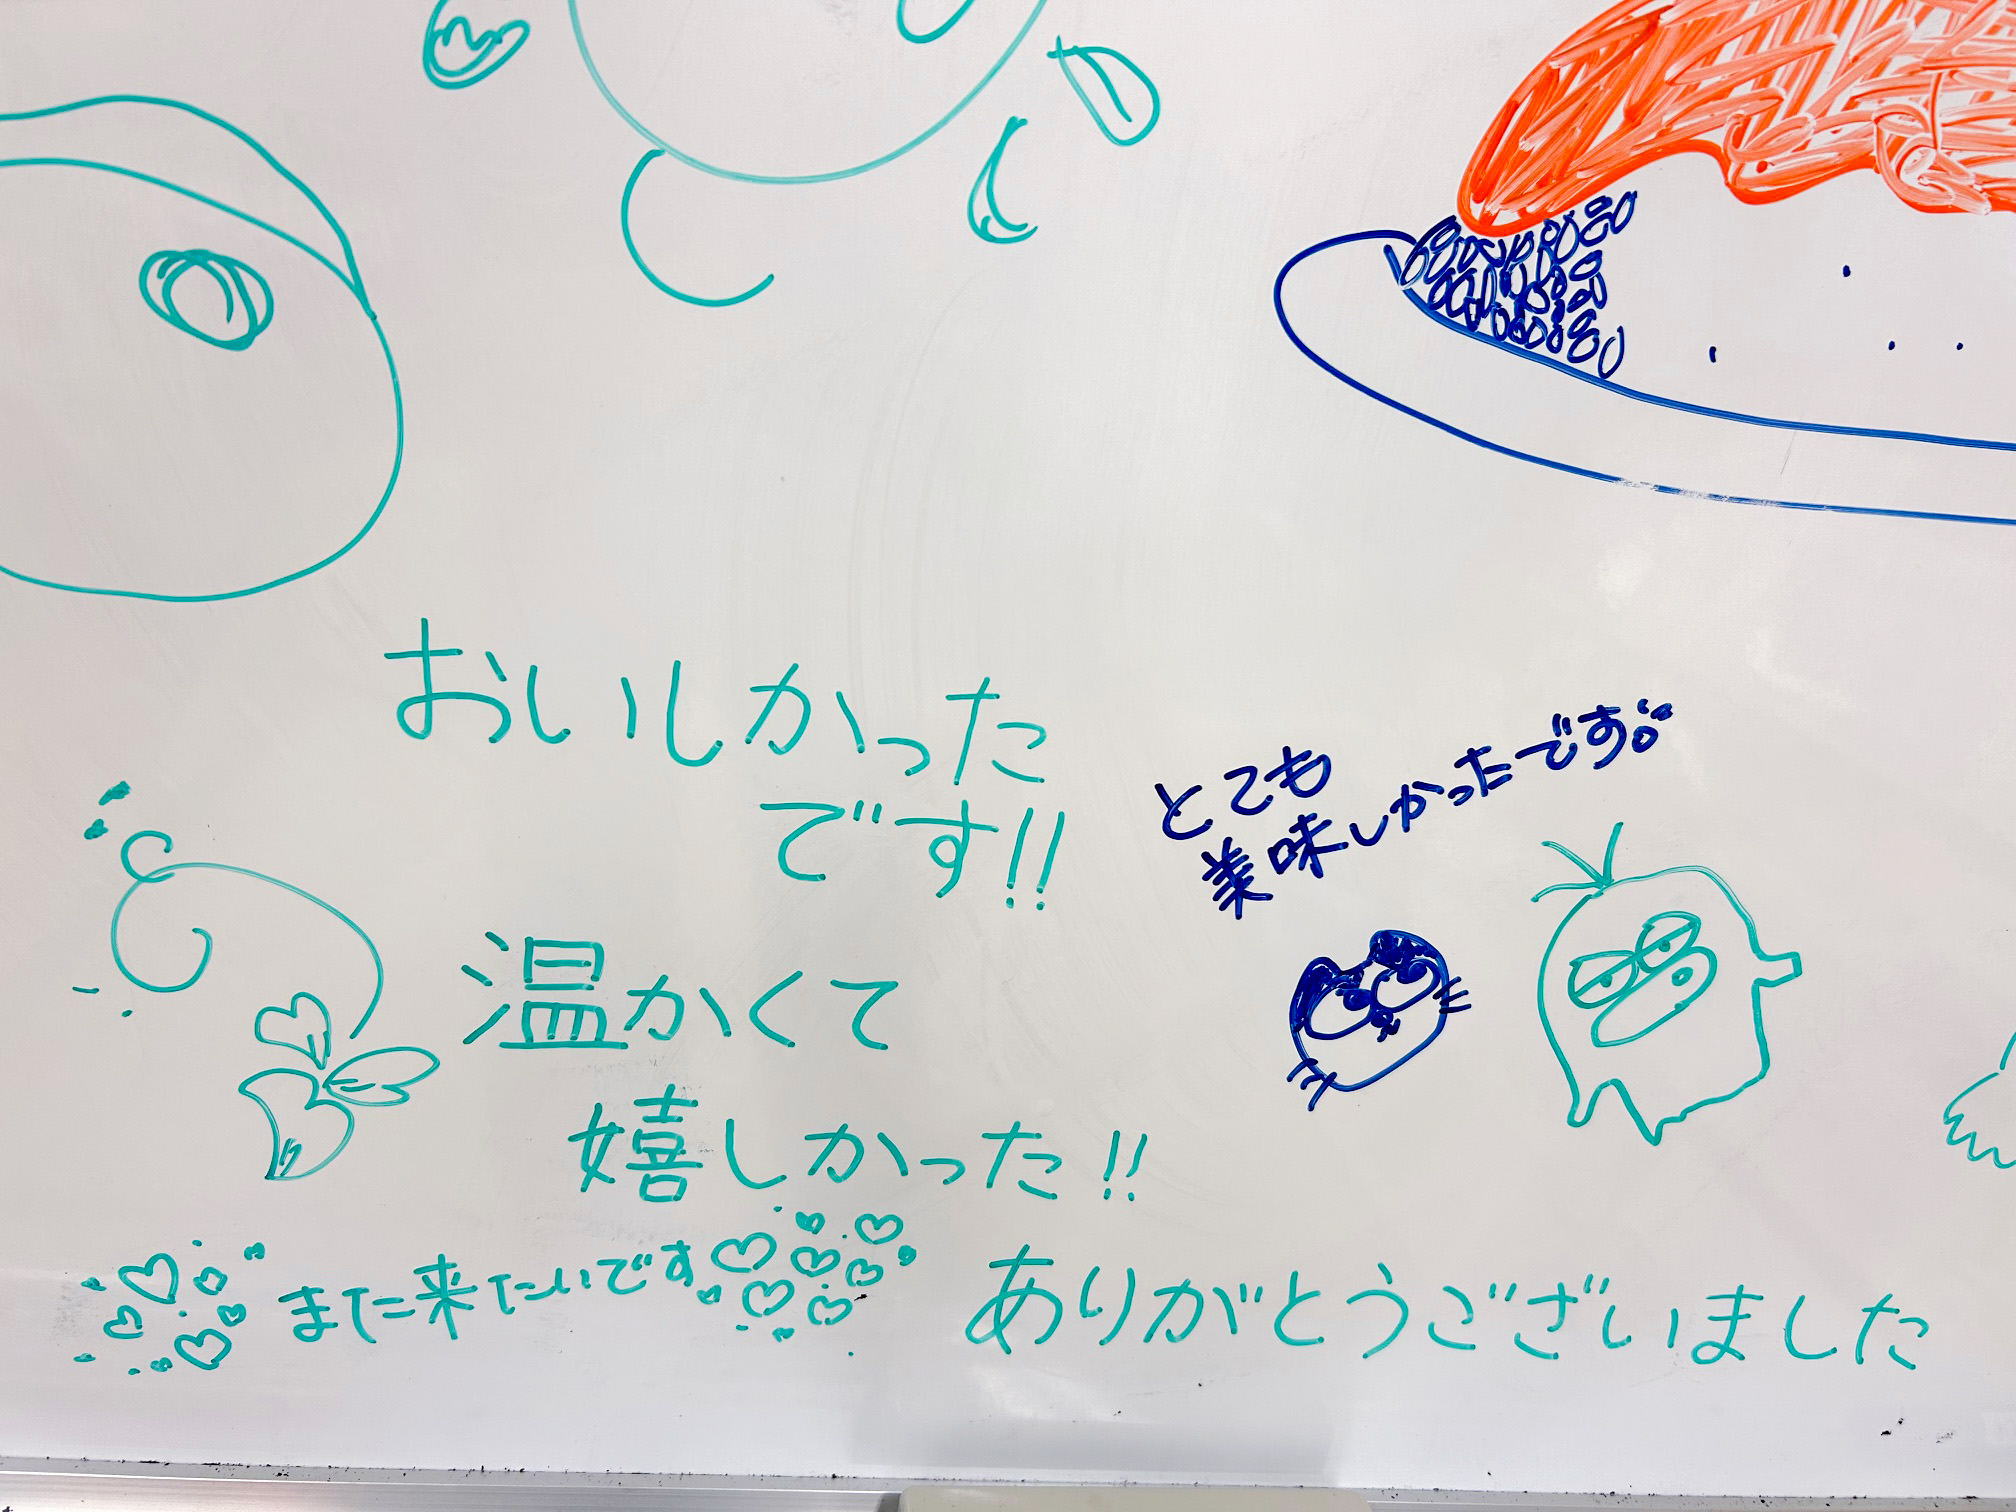 おいしかった
です!!
とても
美味しかったです
温かくて
嬉しかった!!
また来たいです
ありがとうございました